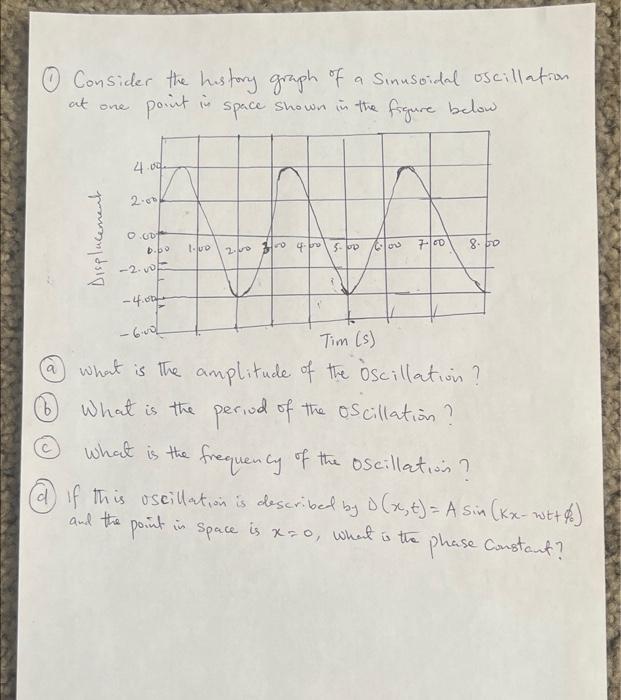 ① Consider the history graph of a sinusoidal oscillation
at one point in space shown in the figure below
4.00
2.00
0.00
0.00 1.00 2.00 3.00 4.00 5.00 6.00 7.00 8.00
-2.00
-4.00
-6.00
Displacement
Tim (s)
ⓐ what is the amplitude of the oscillation?
ⓑ What is the period of the oscillation?
ⓒ what is the frequency of the oscillation?
ⓓ If this oscillation is described by D(x,t) = A sin (Kx - wt + ϕ₀)
and the point in space is x=0, what is the phase constant?